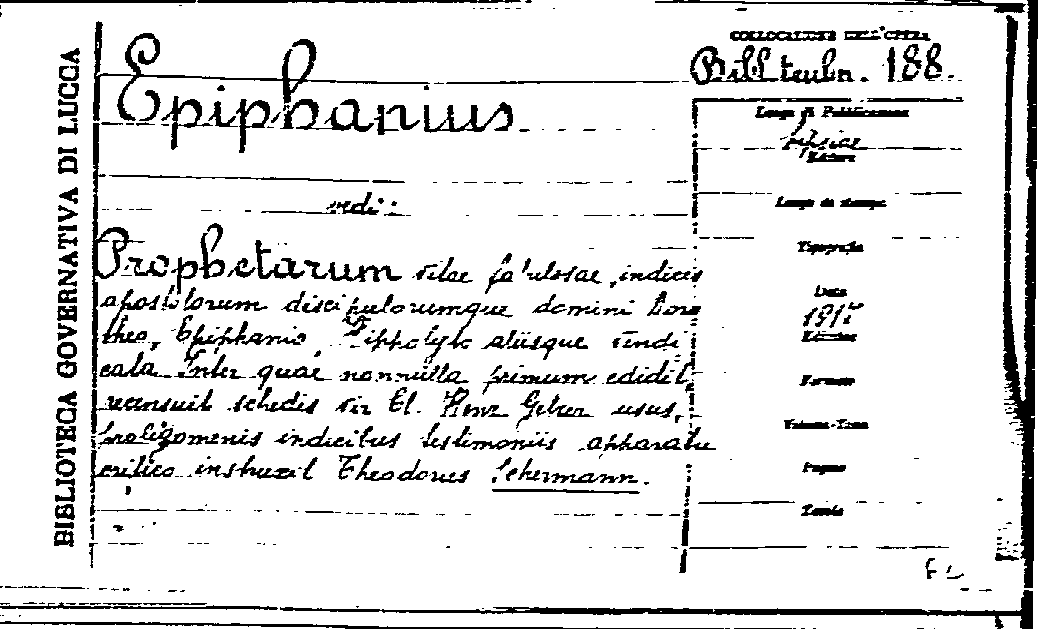 BIBLIOTECA GOVERNATIVA DI LUCCA
COLLOCAZIONE DELL'OPERA
Bibl. teubn. 188.
Epiphanius
vedi:
Prophetarum vitae fabulosae, indices
apostolorum discipulorumque domini Doro
theo, Epiphanio, Hippolyto aliisque vindi
cata Inter quae nonnulla primum edidit
recensuit schedis vir Cl. Henr Gelzer usus,
prolegomenis indicibus testimoniis apparatu
critico instruxit Theodorus Schermann.
Luogo di Pubblicazione
Lipsiae
Editore
Luogo di stampa
Tipografia
Data
Edizione
Formato
Volume-Tomo
Pagine
Tavole